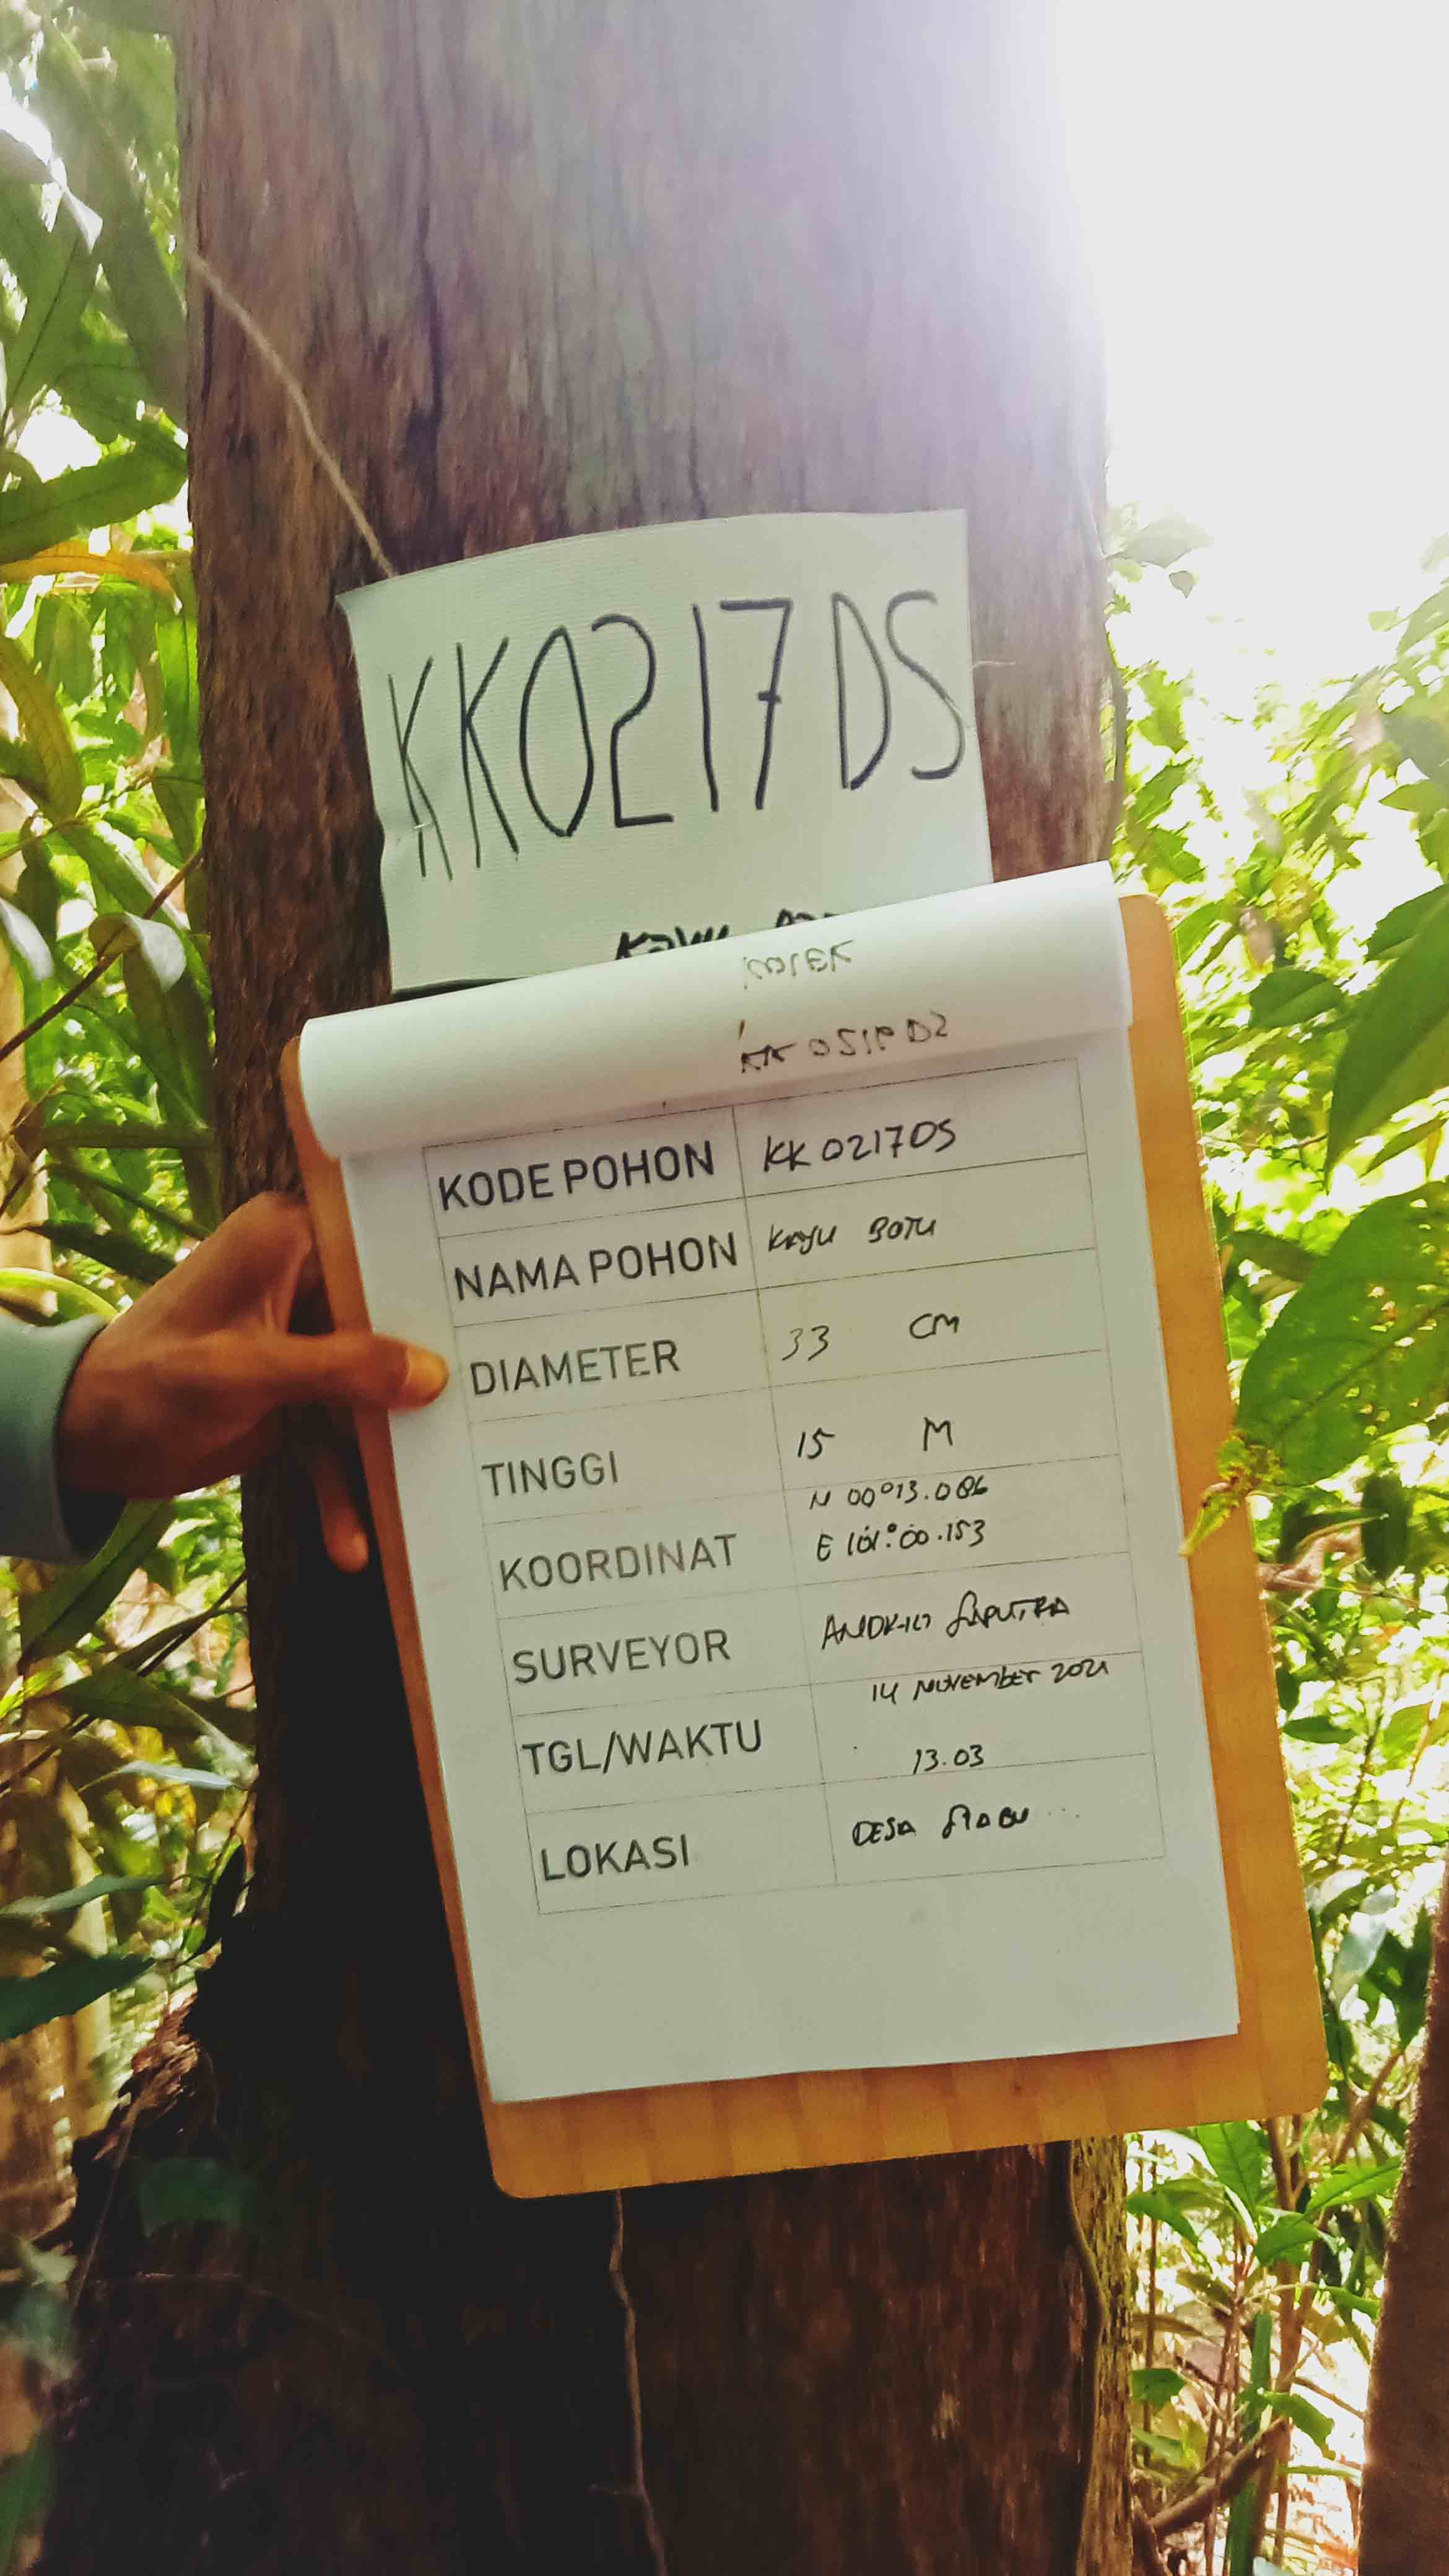 KK0217DS
KODE POHON KK 0217DS
NAMA POHON KAYU BATU
DIAMETER 33 CM
TINGGI 15 M
KOORDINAT N 00°13.086
E 101°.00.153
SURVEYOR SAPUTRA
TGL/WAKTU 14 NOVEMBER 2021
13.03
LOKASI DESA SIABU